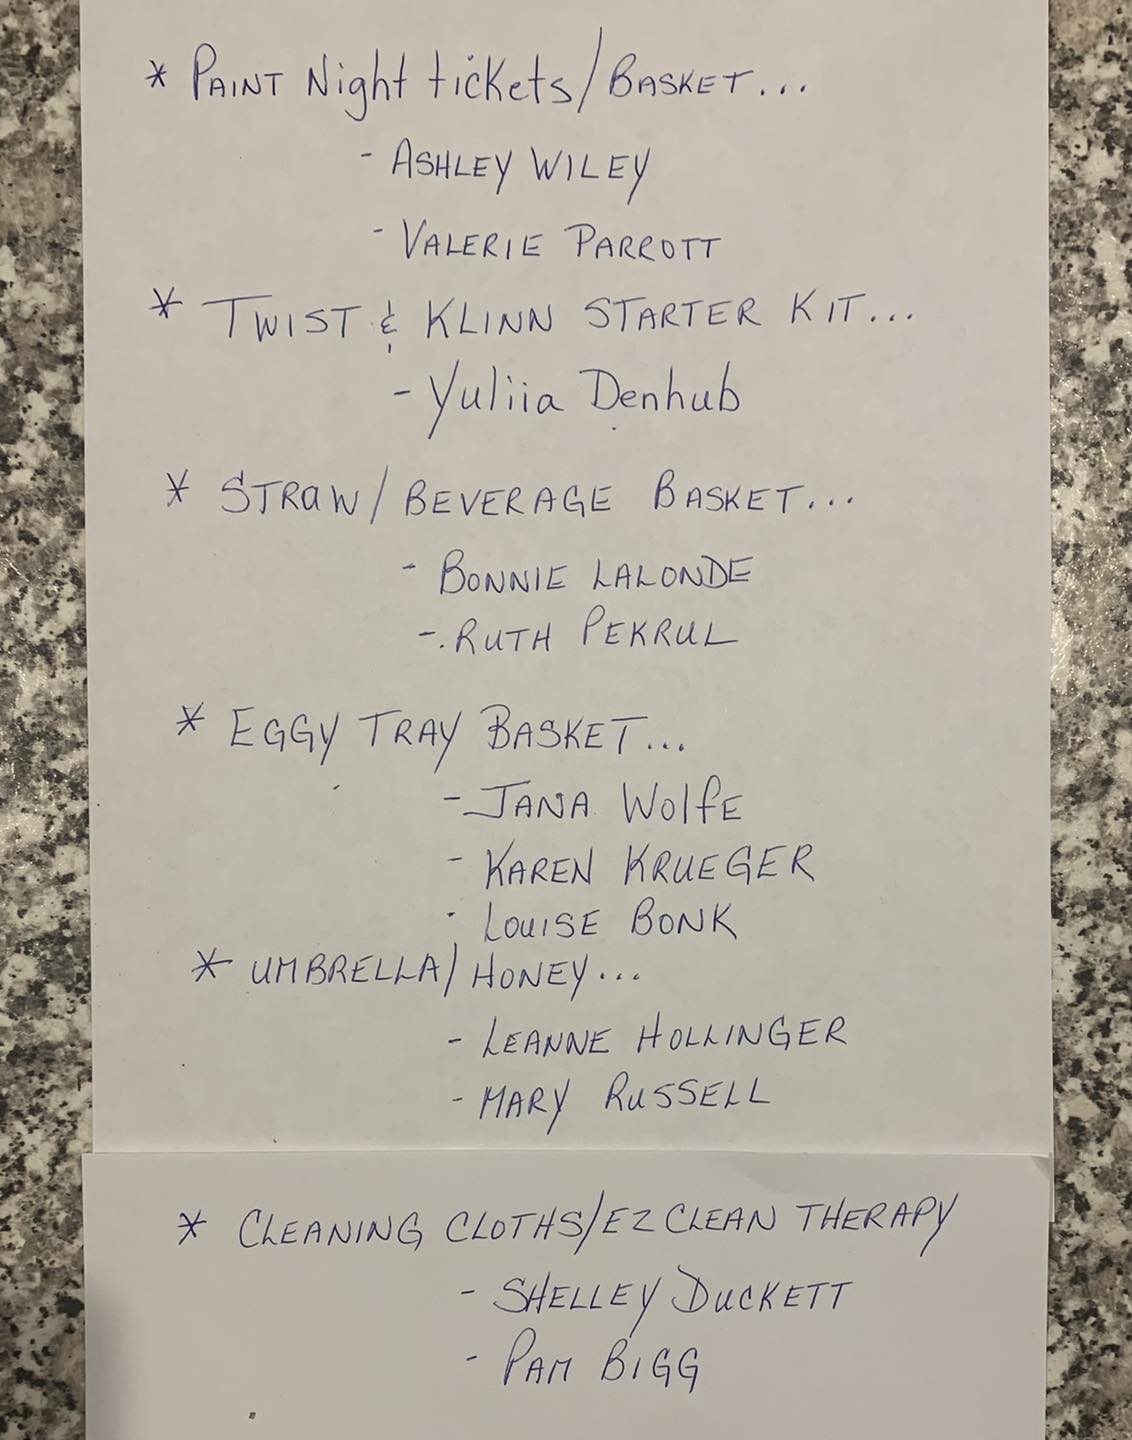 * PAINT Night tickets/BASKET...
- ASHLEY WILEY
- VALERIE PARROTT
* TWIST & KLINN STARTER KIT...
- Yuliia Denhub
* STRAW/BEVERAGE BASKET...
- BONNIE LALONDE
- RUTH PEKRUL
* EGGY TRAY BASKET...
- JANA WOLFE
- KAREN KRUEGER
- LOUISE BONK
* UMBRELLA/HONEY...
- LEANNE HOLLINGER
- MARY RUSSELL
* CLEANING CLOTHS/EZ CLEAN THERAPY
- SHELLEY DUCKETT
- PAM BIGG